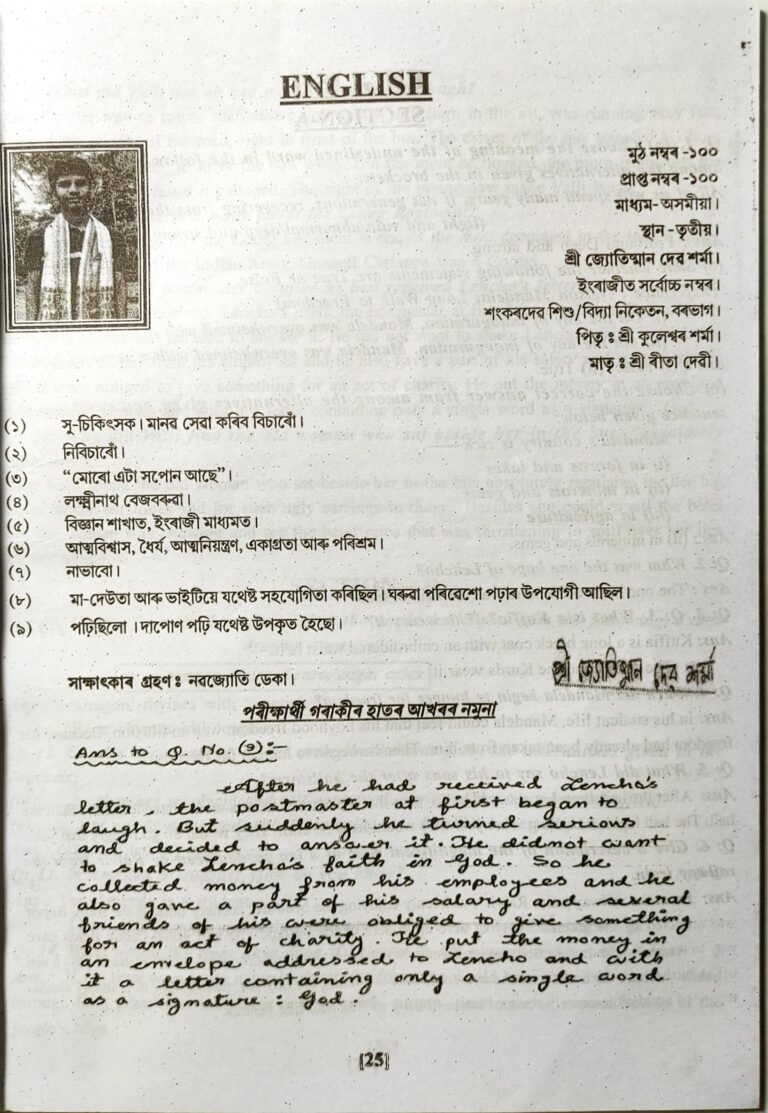 ENGLISH
মুঠ নম্বৰ -১০০
প্ৰাপ্ত নম্বৰ -১০০
মাধ্যম- অসমীয়া।
স্থান -তৃতীয়।
শ্ৰী জ্যোতিষ্মান দেৱ শৰ্মা।
ইংৰাজীত সৰ্বোচ্চ নম্বৰ।
শংকৰদেৱ শিশু/বিদ্যা নিকেতন, বৰভাগ।
পিতৃ : শ্ৰী কুলেশ্বৰ শৰ্মা।
মাতৃ : শ্ৰী ৰীতা দেৱী।
(১) সু-চিকিৎসক। মানৱ সেৱা কৰিব বিচাৰোঁ।
(২) নিবিচাৰোঁ।
(৩) “মোৰো এটা সপোন আছে”।
(৪) লক্ষ্মীনাথ বেজবৰুৱা।
(৫) বিজ্ঞান শাখাত, ইংৰাজী মাধ্যমত।
(৬) আত্মবিশ্বাস, ধৈৰ্য, আত্মনিয়ন্ত্ৰণ, একাগ্ৰতা আৰু পৰিশ্ৰম।
(৭) নাভাবো।
(৮) মা-দেউতা আৰু ভাইটিয়ে যথেষ্ট সহযোগিতা কৰিছিল। ঘৰুৱা পৰিৱেশো পঢ়াৰ উপযোগী আছিল।
(৯) পঢ়িছিলো। দাপোণ পঢ়ি যথেষ্ট উপকৃত হৈছো।
সাক্ষাৎকাৰ গ্ৰহণ : নৱজ্যোতি ডেকা।
শ্ৰী জ্যোতিষ্মান দেৱ শৰ্মা
পৰীক্ষাৰ্থী গৰাকীৰ হাতৰ আখৰৰ নমুনা
Ans to Q. No. (9):-
After he had received Lencho's
letter, the postmaster at first began to
laugh. But suddenly he turned serious
and decided to answer it. He did not want
to shake Lencho's faith in God. So he
collected money from his employees and he
also gave a part of his salary and several
friends of his were obliged to give something
for an act of charity. He put the money in
an envelope addressed to Lencho and with
it a letter containing only a single word
as a signature : God.
[25]